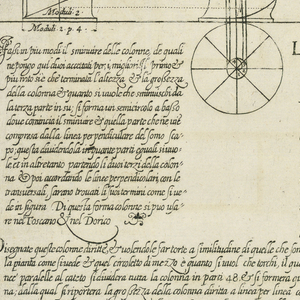 Moduli 2
Moduli 2 p 4
L
Fassi in piu modi il sminuire delle colonne, de quali
ne pongo qui duoi accettati per i migliori. Il primo e
piu noto si è che terminata l'altezza & la grossezza
della colonna & quanto si vuole che sminuischi da
la terza parte in su; si forma un semicircolo a basso
doue comincia il sminuire & quella parte che ne uiè
compresa dalla linea perpendiculare del somo sca-
po; questa diuidendola in quante parti eguali si uuo-
le et in altretante partendo li duoi terzi della colon-
na & poi accordando le linee perpendiculari con le
trasuersali, saran trouati li suoi termini come si ue-
de in figura Di questa forma colonne si può usa-
re nel Toscano & nel Dorico
Disegnate queste colonne diritte, & uolendole far torte a similitudine di quelle che
la pianta come si uede & quel circoletto di mezo è quanto si uuol che torchi, il qua
nee parallele al cateto si diuiderà tutta la colonna in parti 48 & si formerà
na; dalla qual si riporterà la grossezza della colonna diritta a linea per linea